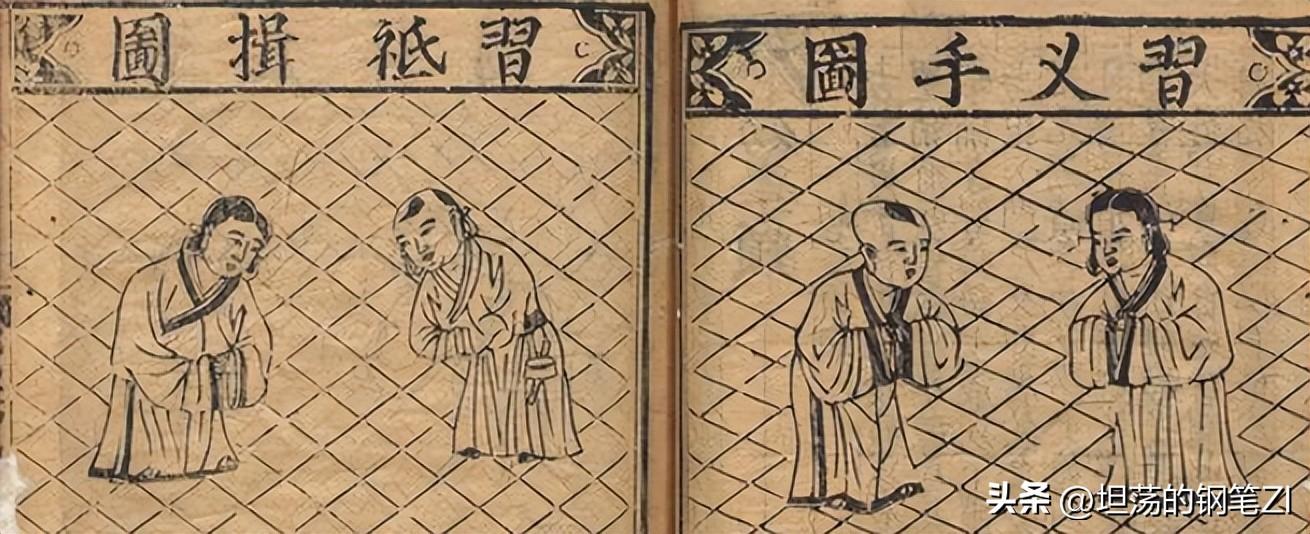 習义手圖
習祗揖圖
头条 @坦荡的钢笔ZI